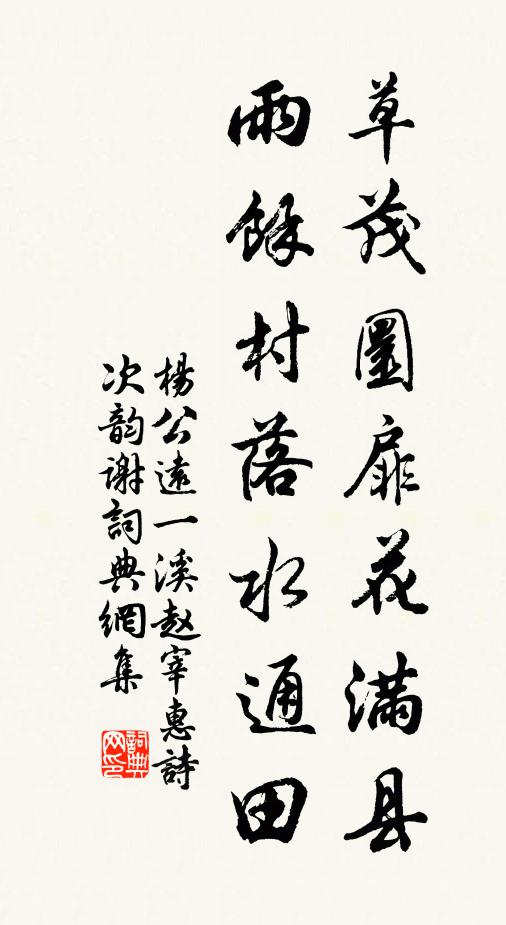 草茂圜扉花满县
雨餘村落水通田
楊公遠一溪赵宰惠詩
次韵谢詞典網集
詞典网印